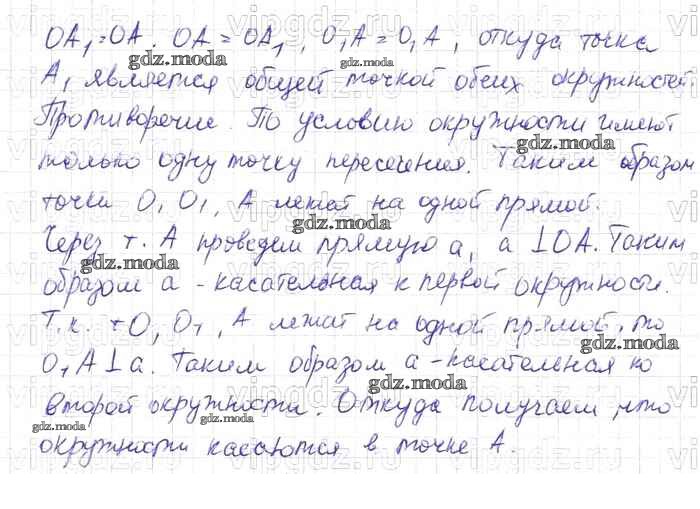 OA₁=OA. OA = OA₁, O₁A = O₁A, откуда точка
A₁ является общей точкой обеих окружностей.
Противоречие. По условию окружности имеют
только одну точку пересечения. Таким образом
точки O, O₁, A лежат на одной прямой.
Через т. A проведем прямую a, a ⊥ OA. Таким
образом a - касательная к первой окружности.
Т.к. тO, O₁, A лежат на одной прямой, то
O₁A ⊥ a. Таким образом a - касательная ко
второй окружности. Откуда получаем, что
окружности касаются в точке A.